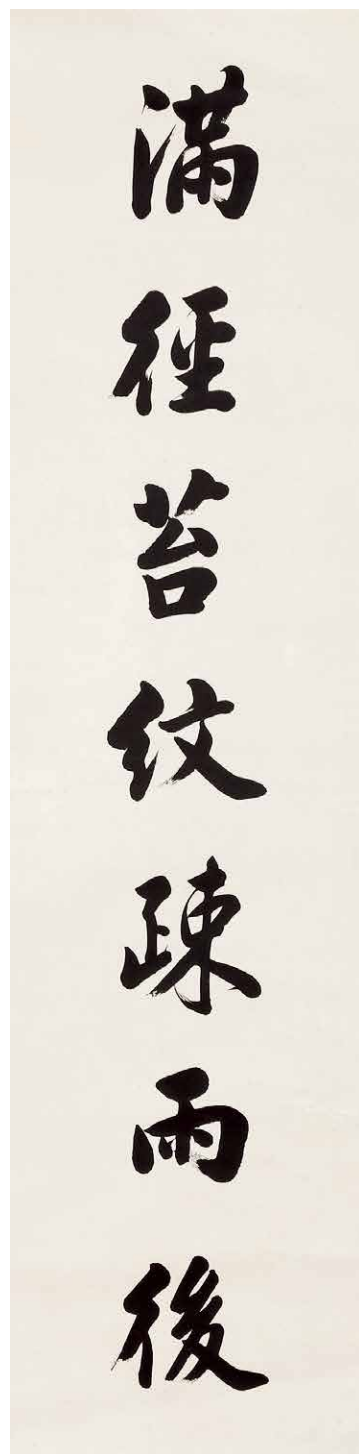 満徑苔紋疎雨後